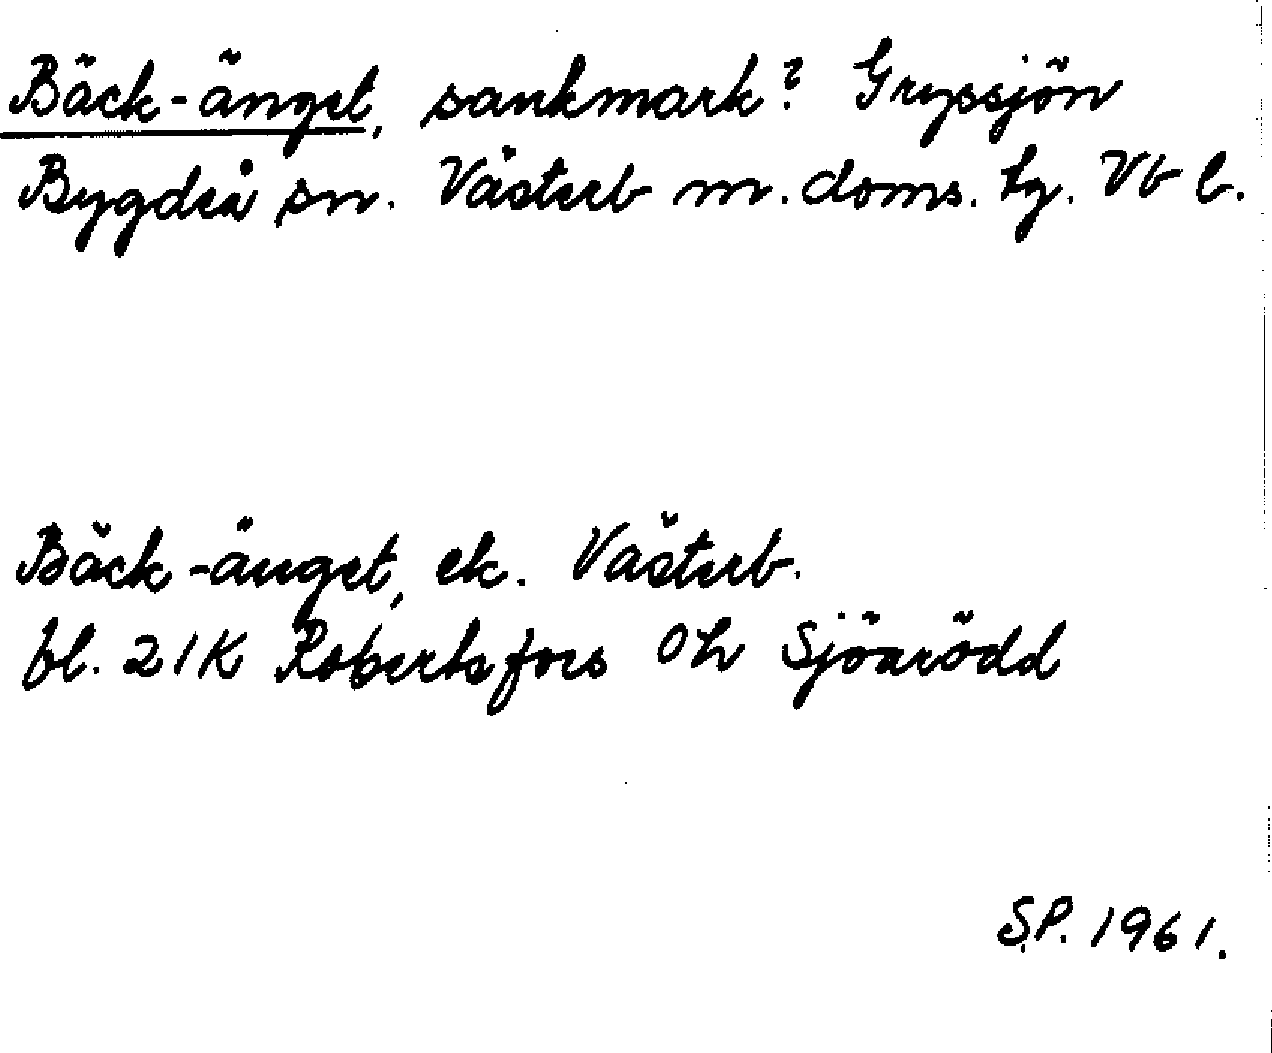 Bäck-änget, sankmark? Gryssjön
Bygdeå sn. Västerb m. doms. tg. Vb l.
Bäck-änget, ek. Västerb.
bl. 21K Robertsfors 0h Sjöarödd
S.P. 1961.